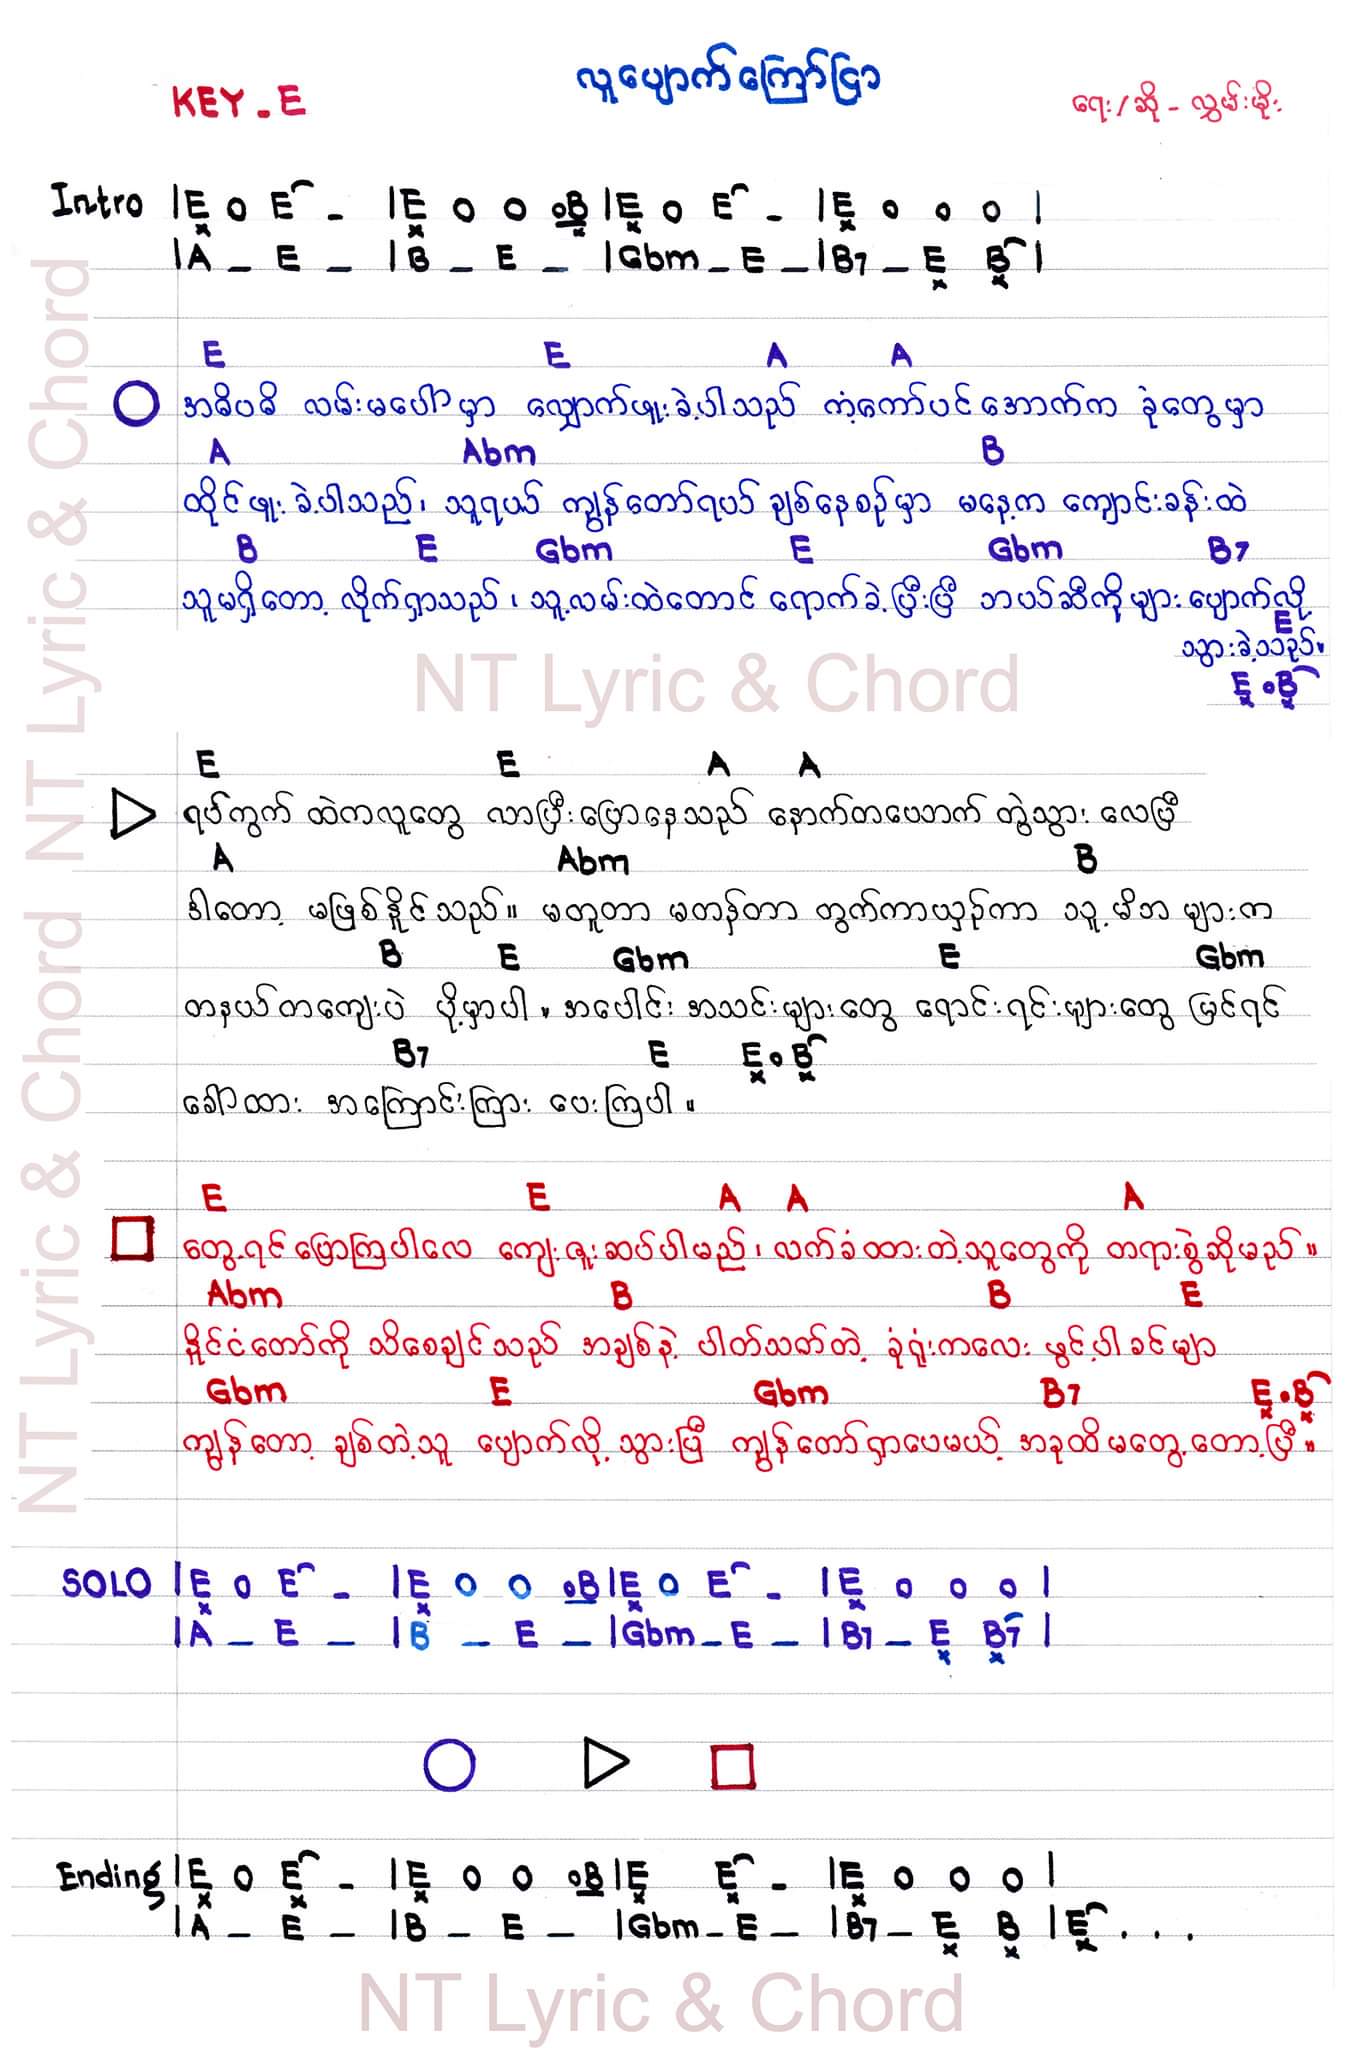 လူပျောက်ကြော်ငြာ
KEY - E
ရေး/ဆို - လွှမ်းမိုး
Intro |E o E - |E o o oB |E o E - |E o o o |
|A - E - |B - E - |Gbm - E - |B7 - E B |
E E A A
အဓိပတိ လမ်းမပေါ်မှာ လျှောက်ဖူးခဲ့ပါသည် ကံ့ကော်ပင်အောက်က ခုံတွေမှာ
A Abm B
ထိုင်ဖူးခဲ့ပါသည်၊ သူရယ် ကျွန်တော်ရယ် ချစ်နေစဉ်မှာ မနေ့က ကျောင်းခန်းထဲ
B E Gbm E Gbm B7
သူမရှိတော့ လိုက်ရှာသည်၊ သူ့လမ်းထဲတောင် ရောက်ခဲ့ပြီးပြီ ဘယ်ဆီကိုများ ပျောက်လို့
E
သွားခဲ့သည်။
E • B
E E A A
ရပ်ကွက် ထဲကလူတွေ လာပြီးပြောနေသည် နောက်တယောက် တွဲသွား လေပြီ
A Abm B
ဒါတော့ မဖြစ်နိုင်သည်။ မတူတာ မတန်တာ တွက်ကာယှဉ်ကာ သူ့မိဘများက
B E Gbm E Gbm
တနယ်တကျေးပဲ ပို့မှာပါ။ အပေါင်း အသင်းများတွေ ရောင်းရင်းများတွေ မြင်ရင်
B7 E E • B
ခေါ်ထား အကြောင်းကြား ပေးကြပါ။
E E A A A
တွေ့ရင်ပြောကြပါလေ ကျေးဇူးဆပ်ပါမည်၊ လက်ခံထားတဲ့သူတွေကို တရားစွဲဆိုမည်။
Abm B B E
နိုင်ငံတော်ကို သိစေချင်သည် အချစ်နဲ့ ပါတ်သတ်တဲ့ ခုံရုံးကလေး ဖွင့်ပါခင်ဗျာ
Gbm E Gbm B7 E • B
ကျွန်တော့ ချစ်တဲ့သူ ပျောက်လို့ သွားပြီ ကျွန်တော်ရှာပေမယ့် အခုထိမတွေ့တော့ပြီ။
SOLO |E o E - |E o o oB |E o E - |E o o o |
|A - E - |B - E - |Gbm - E - |B7 - E B7 |
Ending |E o E - |E o o oB |E E - |E o o o |
|A - E - |B - E - |Gbm - E - |B7 - E B |E . . .
NT Lyric & Chord
NT Lyric & Chord
NT Lyric & Chord NT Lyric & Chord